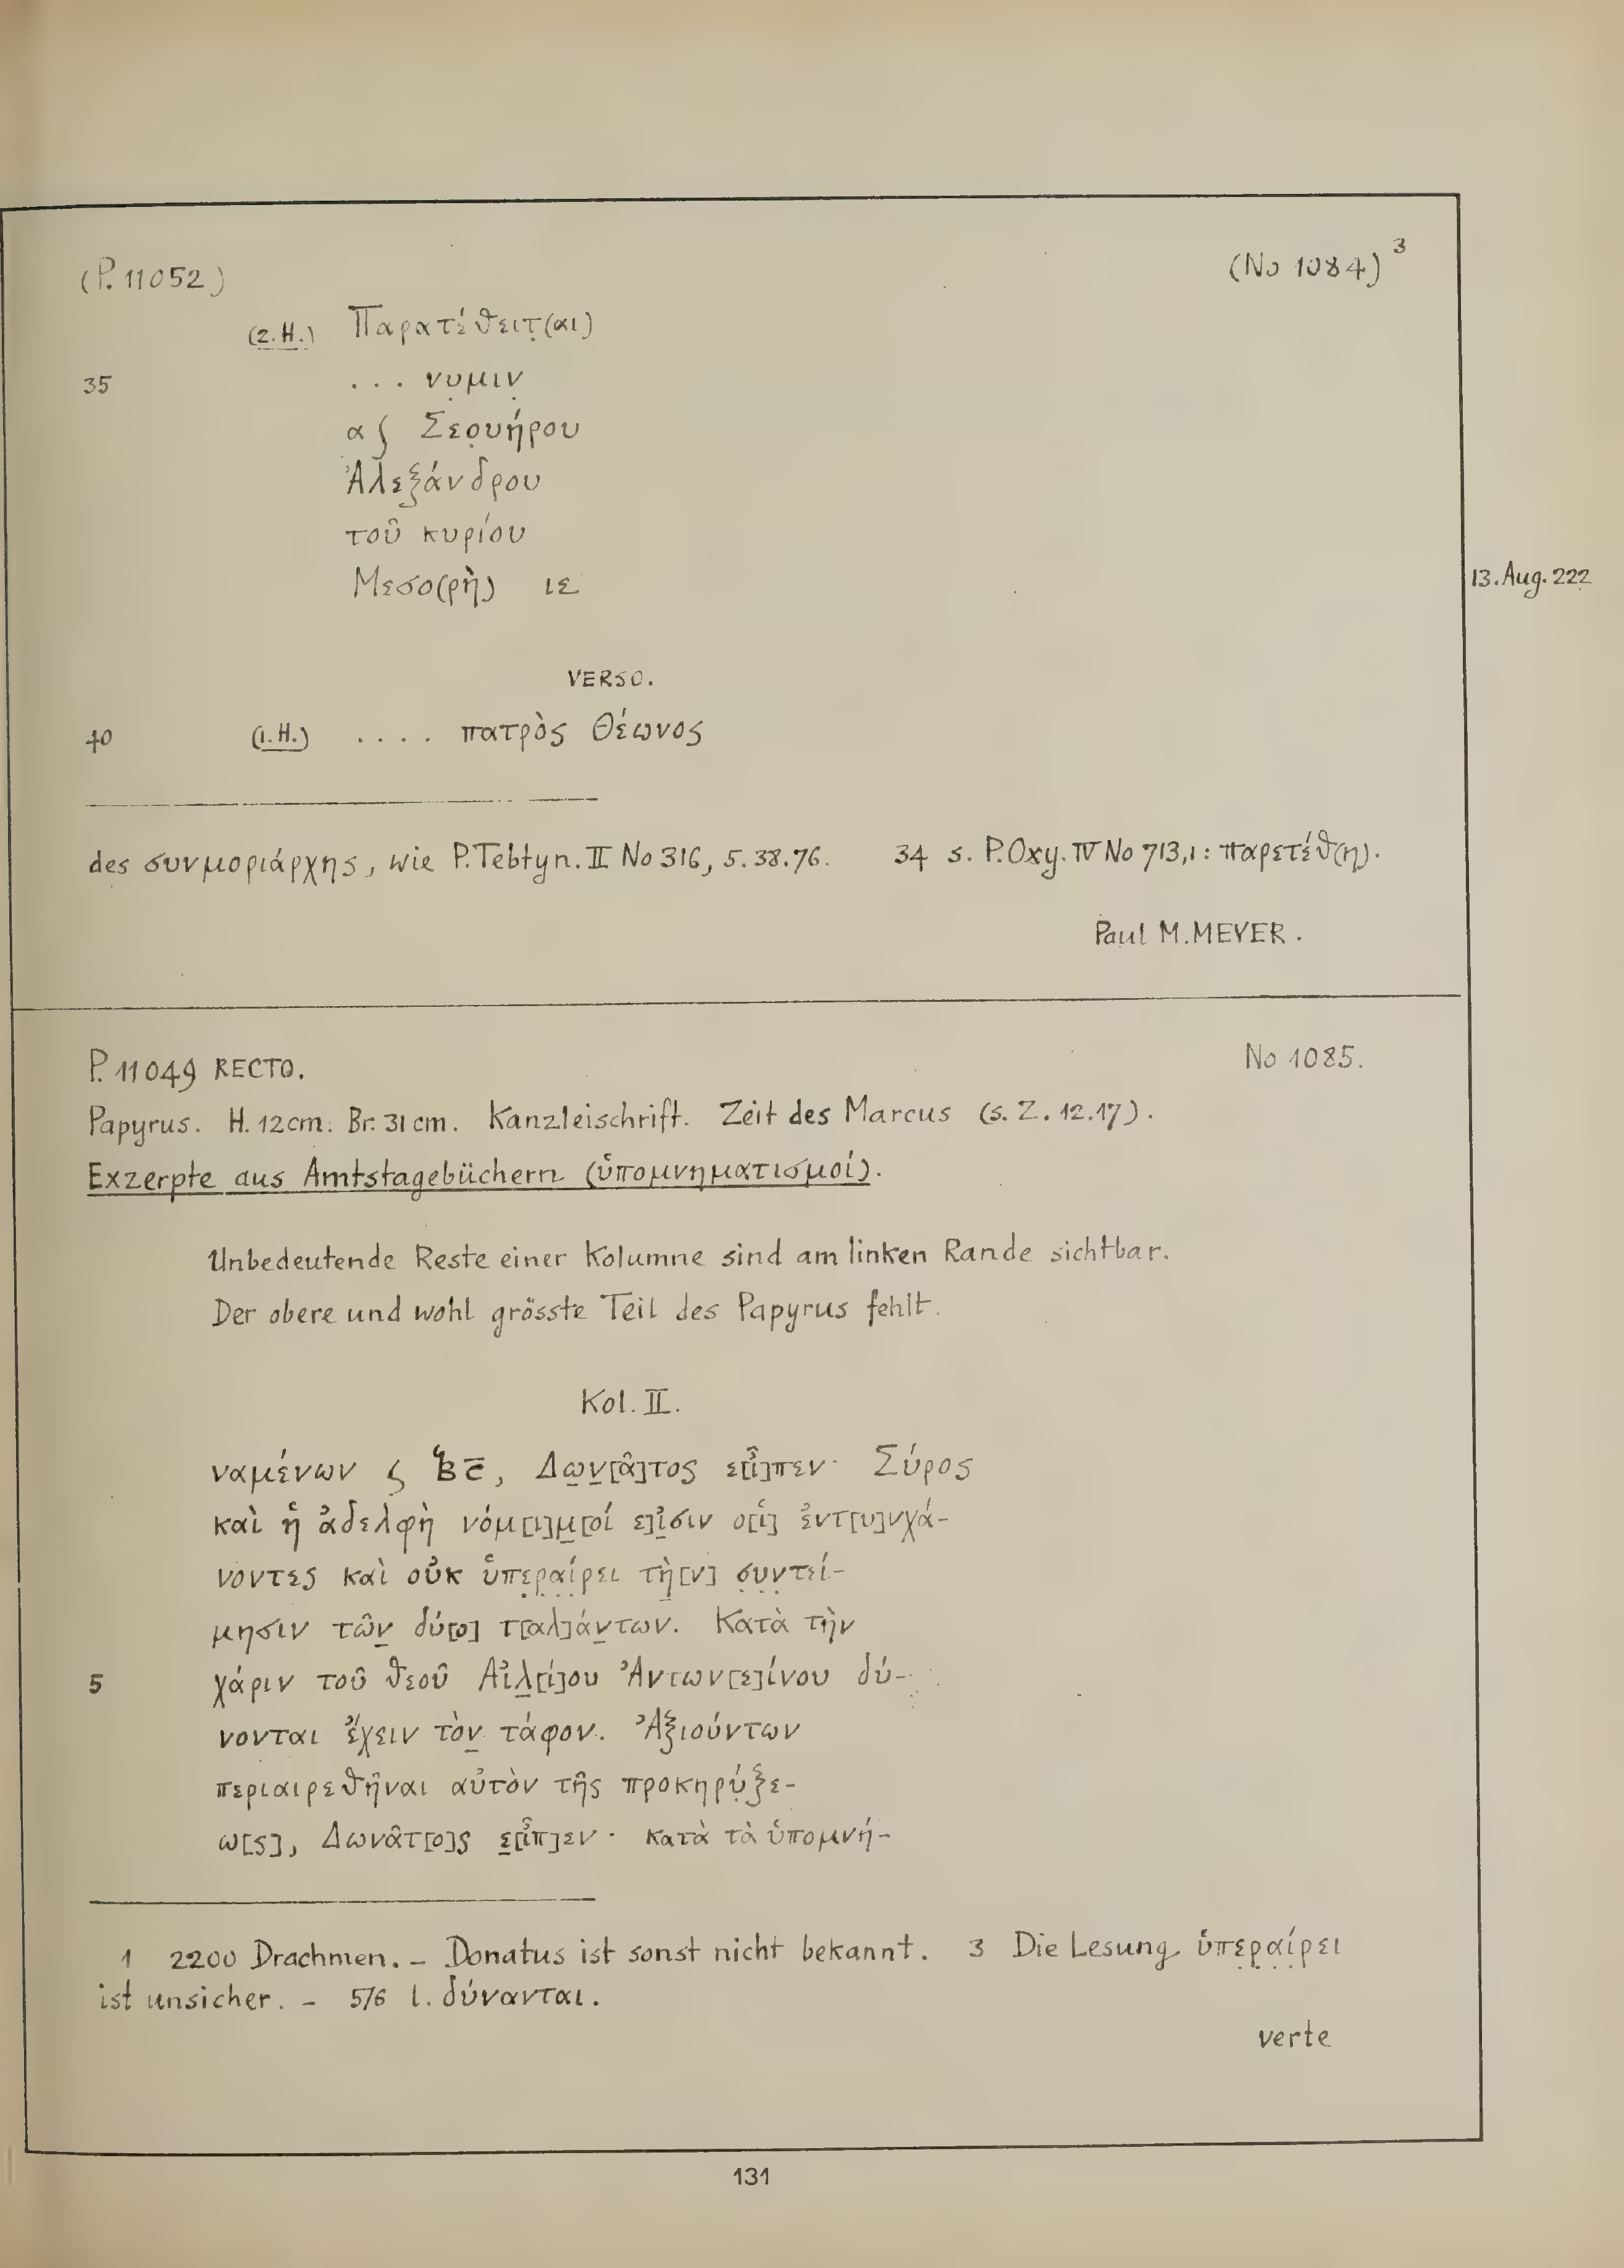 (P. 11052) (No 1084) 3
(2.H.) Παρατέθειτ̣(αι)
35 . . . νυ̣μιν̣
α ʃ Σεο̣υήρου
Ἀλεξάνδρου
τοῦ κυρίου
Μεσο(ρὴ) ιε 13. Aug. 222
VERSO.
40 (1.H.) . . . . πατρὸς Θέωνος
des συνμοριάρχης, wie P. Tebtyn. II No 316, 5. 38. 76. 34 s. P. Oxy. IV No 713,1: παρετέθ(η).
Paul M. MEYER.
P. 11049 RECTO. No 1085.
Papyrus. H. 12 cm. Br. 31 cm. Kanzleischrift. Zeit des Marcus (s. Z. 12.17).
Exzerpte aus Amtstagebüchern (ὑπομνηματισμοί).
Unbedeutende Reste einer Kolumne sind am linken Rande sichtbar.
Der obere und wohl grösste Teil des Papyrus fehlt.
Kol. II.
ναμένων ʃ Β̔ σ̅, Δω̲ν̲[ᾶ]τος ε[ἶ]πεν· Σύρος
καὶ ἡ ἀδελφὴ νόμ[ι]μ̲[οί ε]ἰ̲σιν ο[ἱ] ἐντ[υ]νχά-
νοντες καὶ οὐκ ὑπε̣ρ̣α̣ί̣ρει τὴ̲[ν] σ̣υ̣ν̣τεί-
μησιν τῶν̲ δύ[ο] τ[αλ]άν̲των. Κατὰ τὴν
5 χάριν τοῦ θεοῦ Αἰλ̲[ί]ου Ἀντων[ε]ίνου δύ-
νονται ἔχειν τὸν̲ τάφον. Ἀξιούντων
περιαιρεθῆναι αὐτὸν τῆς προκηρύ̣ξε-
ω[ς], Δωνᾶτ[ο]ς ε̲[ἶπ]εν· κατὰ τὰ ὑπομνή-
1 2200 Drachmen. – Donatus ist sonst nicht bekannt. 3 Die Lesung ὑπε̣ρ̣α̣ί̣ρει
ist unsicher. – 5/6 l. δύνανται.
verte
131